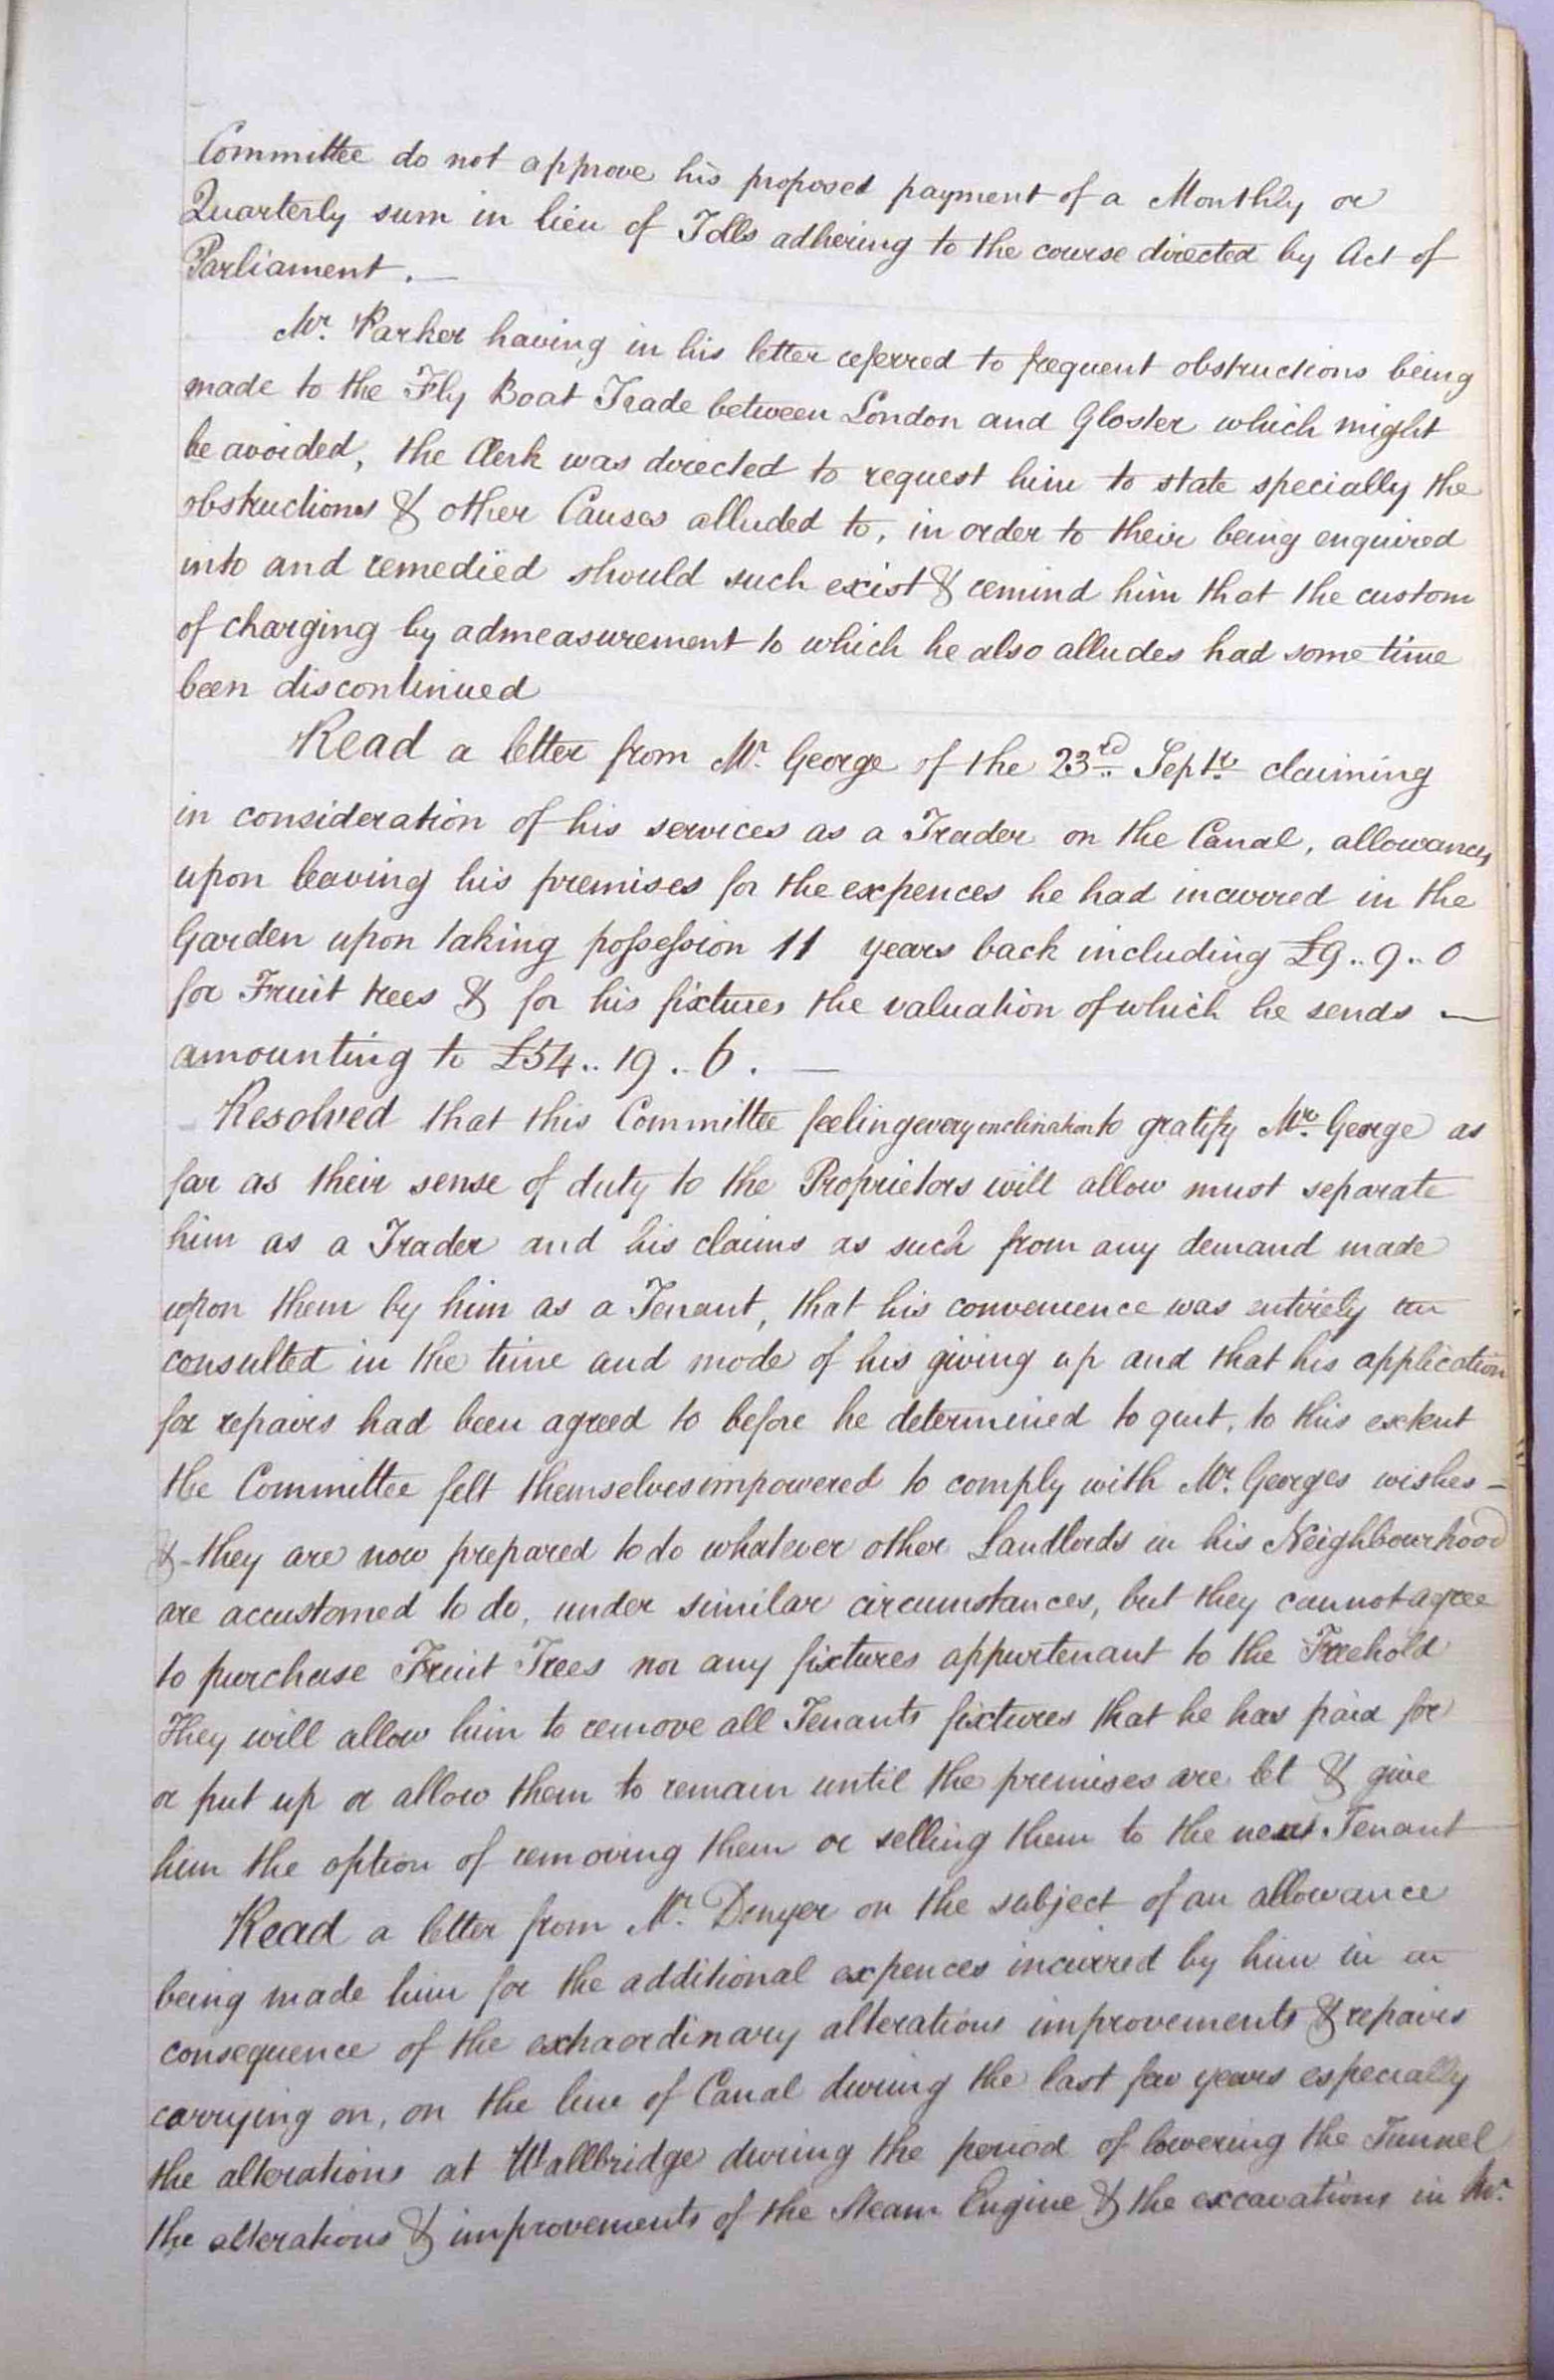 Committee do not approve his proposed payment of a Monthly or
Quarterly sum in lieu of Tolls adhering to the course directed by Act of
Parliament. —
Mr. Parker having in his letter referred to frequent obstructions being
made to the Fly Boat Trade between London and Gloster which might
be avoided, the Clerk was directed to request him to state specially the
obstructions & other Causes alluded to, in order to their being enquired
into and remedied should such exist & remind him that the custom
of charging by admeasurement to which he also alludes had some time
been discontinued
Read a letter from Mr. George of the 23rd Septr. claiming
in consideration of his services as a Trader on the Canal, allowances
upon leaving his premises for the expences he had incurred in the
Garden upon taking possession 11 years back including £9..9..0
for Fruit trees & for his fixtures the valuation of which he sends —
amounting to £54..19..6. —
Resolved that this Committee feeling every inclination to gratify Mr. George as
far as their sense of duty to the Proprietors will allow must separate
him as a Trader and his claims as such from any demand made
upon them by him as a Tenant, that his convenience was entirely
consulted in the time and mode of his giving up and that his application
for repairs had been agreed to before he determined to quit, to this extent
the Committee felt themselves impowered to comply with Mr. Georges wishes —
& they are now prepared to do whatever other Landlords in his Neighbourhood
are accustomed to do, under similar circumstances, but they cannot agree
to purchase Fruit Trees nor any fixtures appurtenant to the Freehold
They will allow him to remove all Tenants fixtures that he has paid for
or put up or allow them to remain until the premises are let & give
him the option of removing them or selling them to the next Tenant
Read a letter from Mr. Denyer on the subject of an allowance
being made him for the additional expences incurred by him in
consequence of the extraordinary alterations improvements & repairs
carrying on, on the line of Canal during the last few years especially
the alterations at Wallbridge during the period of lowering the Tunnel
the alterations & improvements of the Steam Engine & the excavations in Mr.